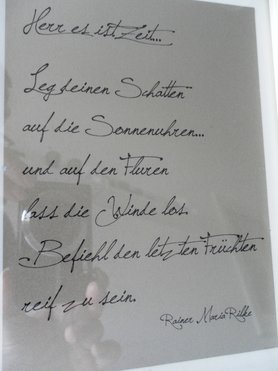 Herr es ist Zeit...
Leg deinen Schatten
auf die Sonnenuhren...
und auf den Fluren
lass die Winde los.
Befiehl den letzten Früchten
reif zu sein.
Rainer Maria Rilke